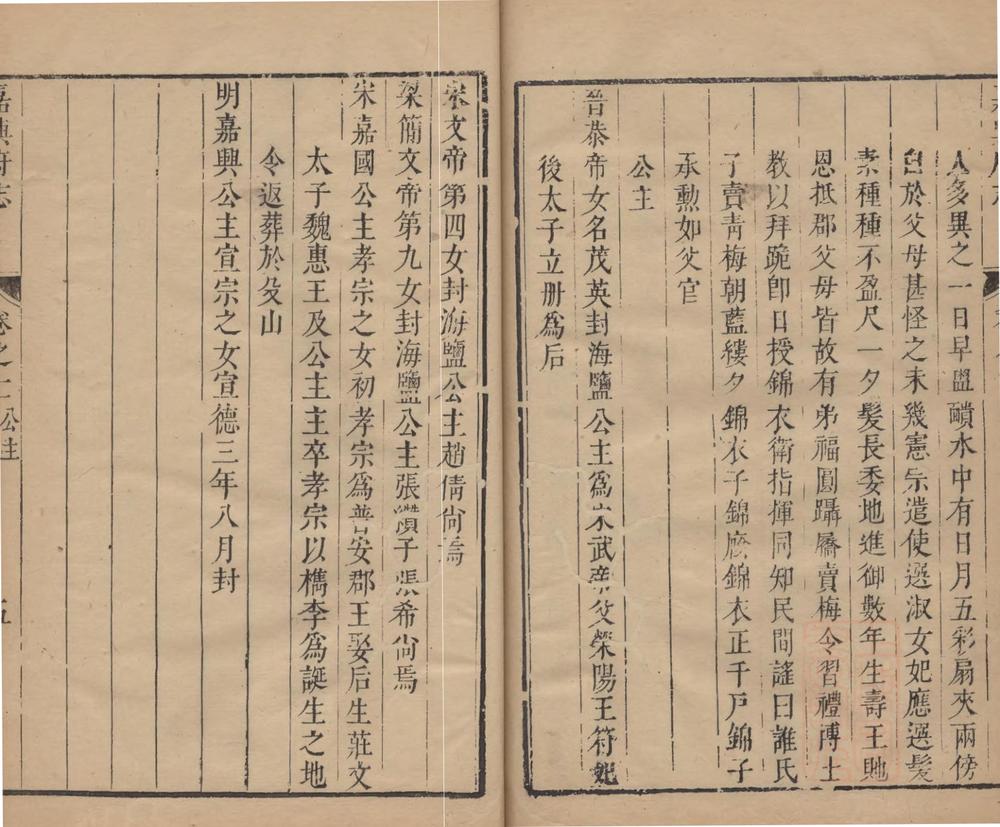 人多異之一日早盥頮水中有日月五彩扇夾兩傍
白於父母甚怪之未幾憲宗遣使選淑女妃應選髮
素種種不盈尺一夕髮長委地進御數年生壽王貤
恩抵郡父母皆故有弟福圓躡屩賣梅令習禮博士
教以拜跪卽日授錦衣衛指揮同知民間謠曰誰氏
子賣青梅朝藍縷夕錦衣子錦廕錦衣正千戶錦子
承勳如父官
公主
晉恭帝女名茂英封海鹽公主爲宋武帝父榮陽王符妃
後太子立册爲后
宋文帝第四女封海鹽公主趙倩尙焉
梁簡文帝第九女封海鹽公主張纘子張希尙焉
宋嘉國公主孝宗之女初孝宗爲普安郡王娶后生莊文
太子魏惠王及公主主卒孝宗以檇李爲誕生之地
令返葬於殳山
明嘉興公主宣宗之女宣德三年八月封
嘉興府志
卷之二 公主
五